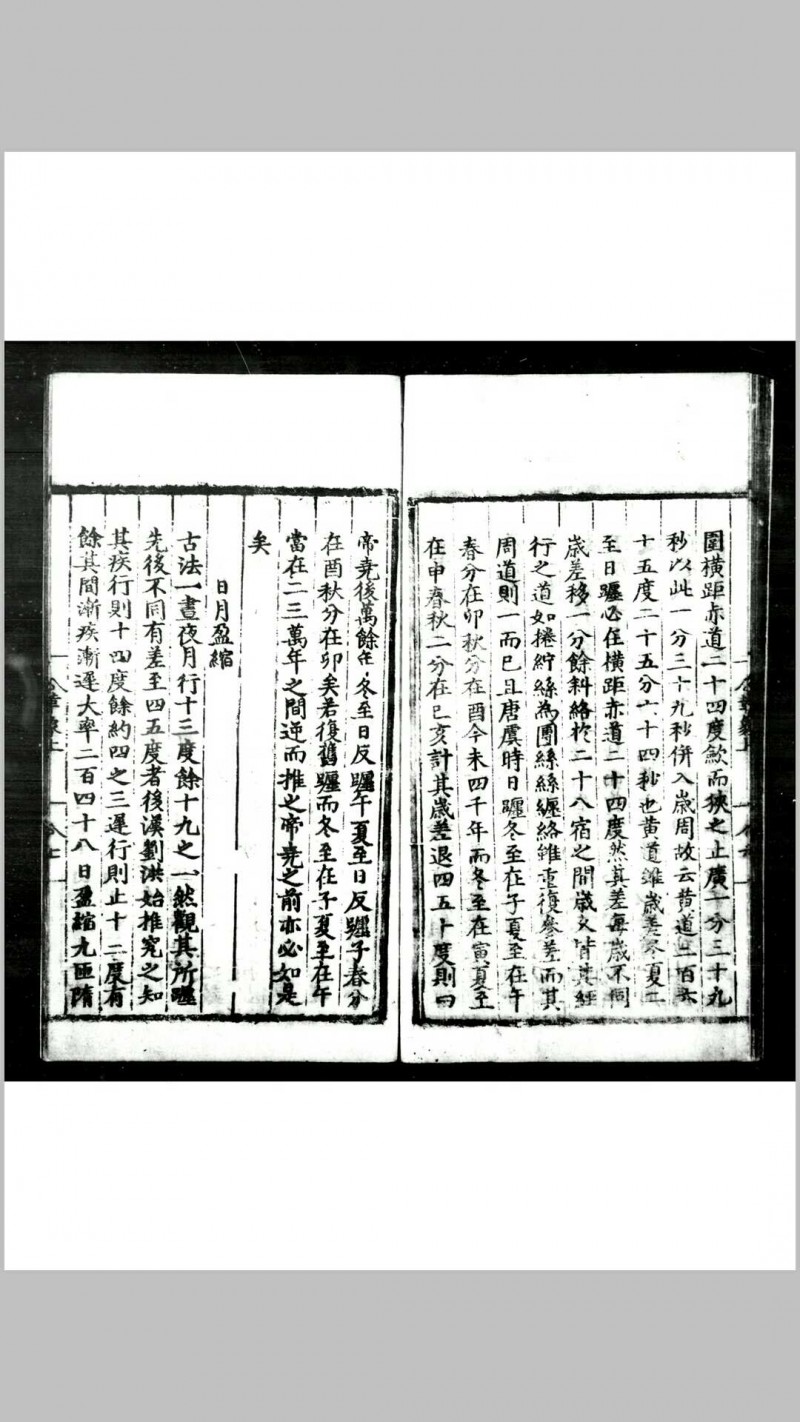 圍橫距赤道二十四度歛而狹之止廣一分三十九
秒以此一分三十九秒併入歲周故云黄道三百六
十五度二十五分六十四秒也黄道雖歲差冬夏二
至日躔必在橫距赤道二十四度然其差每歲不同
歲差移一分餘斜絡於二十八宿之間歲久皆其經
行之道如捲紵絲為團絲絲纒絡雖重復參差而其
周道則一而已且唐虞時日躔冬至在子夏至在午
春分在卯秋分在酉今未四千年而冬至在寅夏至
在申春秋二分在巳亥計其歲差退四五十度則曰
帝堯後萬餘年冬至日反躔午夏至日反躔子春分
在酉秋分在卯矣若復舊躔而冬至在子夏至在午
當在二三萬年之間逆而推之帝堯之前亦必如是
矣
日月盈縮
古法一晝夜月行十三度餘十九之一然觀其所躔
先後不同有差至四五度者後漢劉洪始推究之知
其疾行則十四度餘約四之三遲行則止十二度有
餘其間漸疾漸遲大率二百四十八日盈縮九匝隋